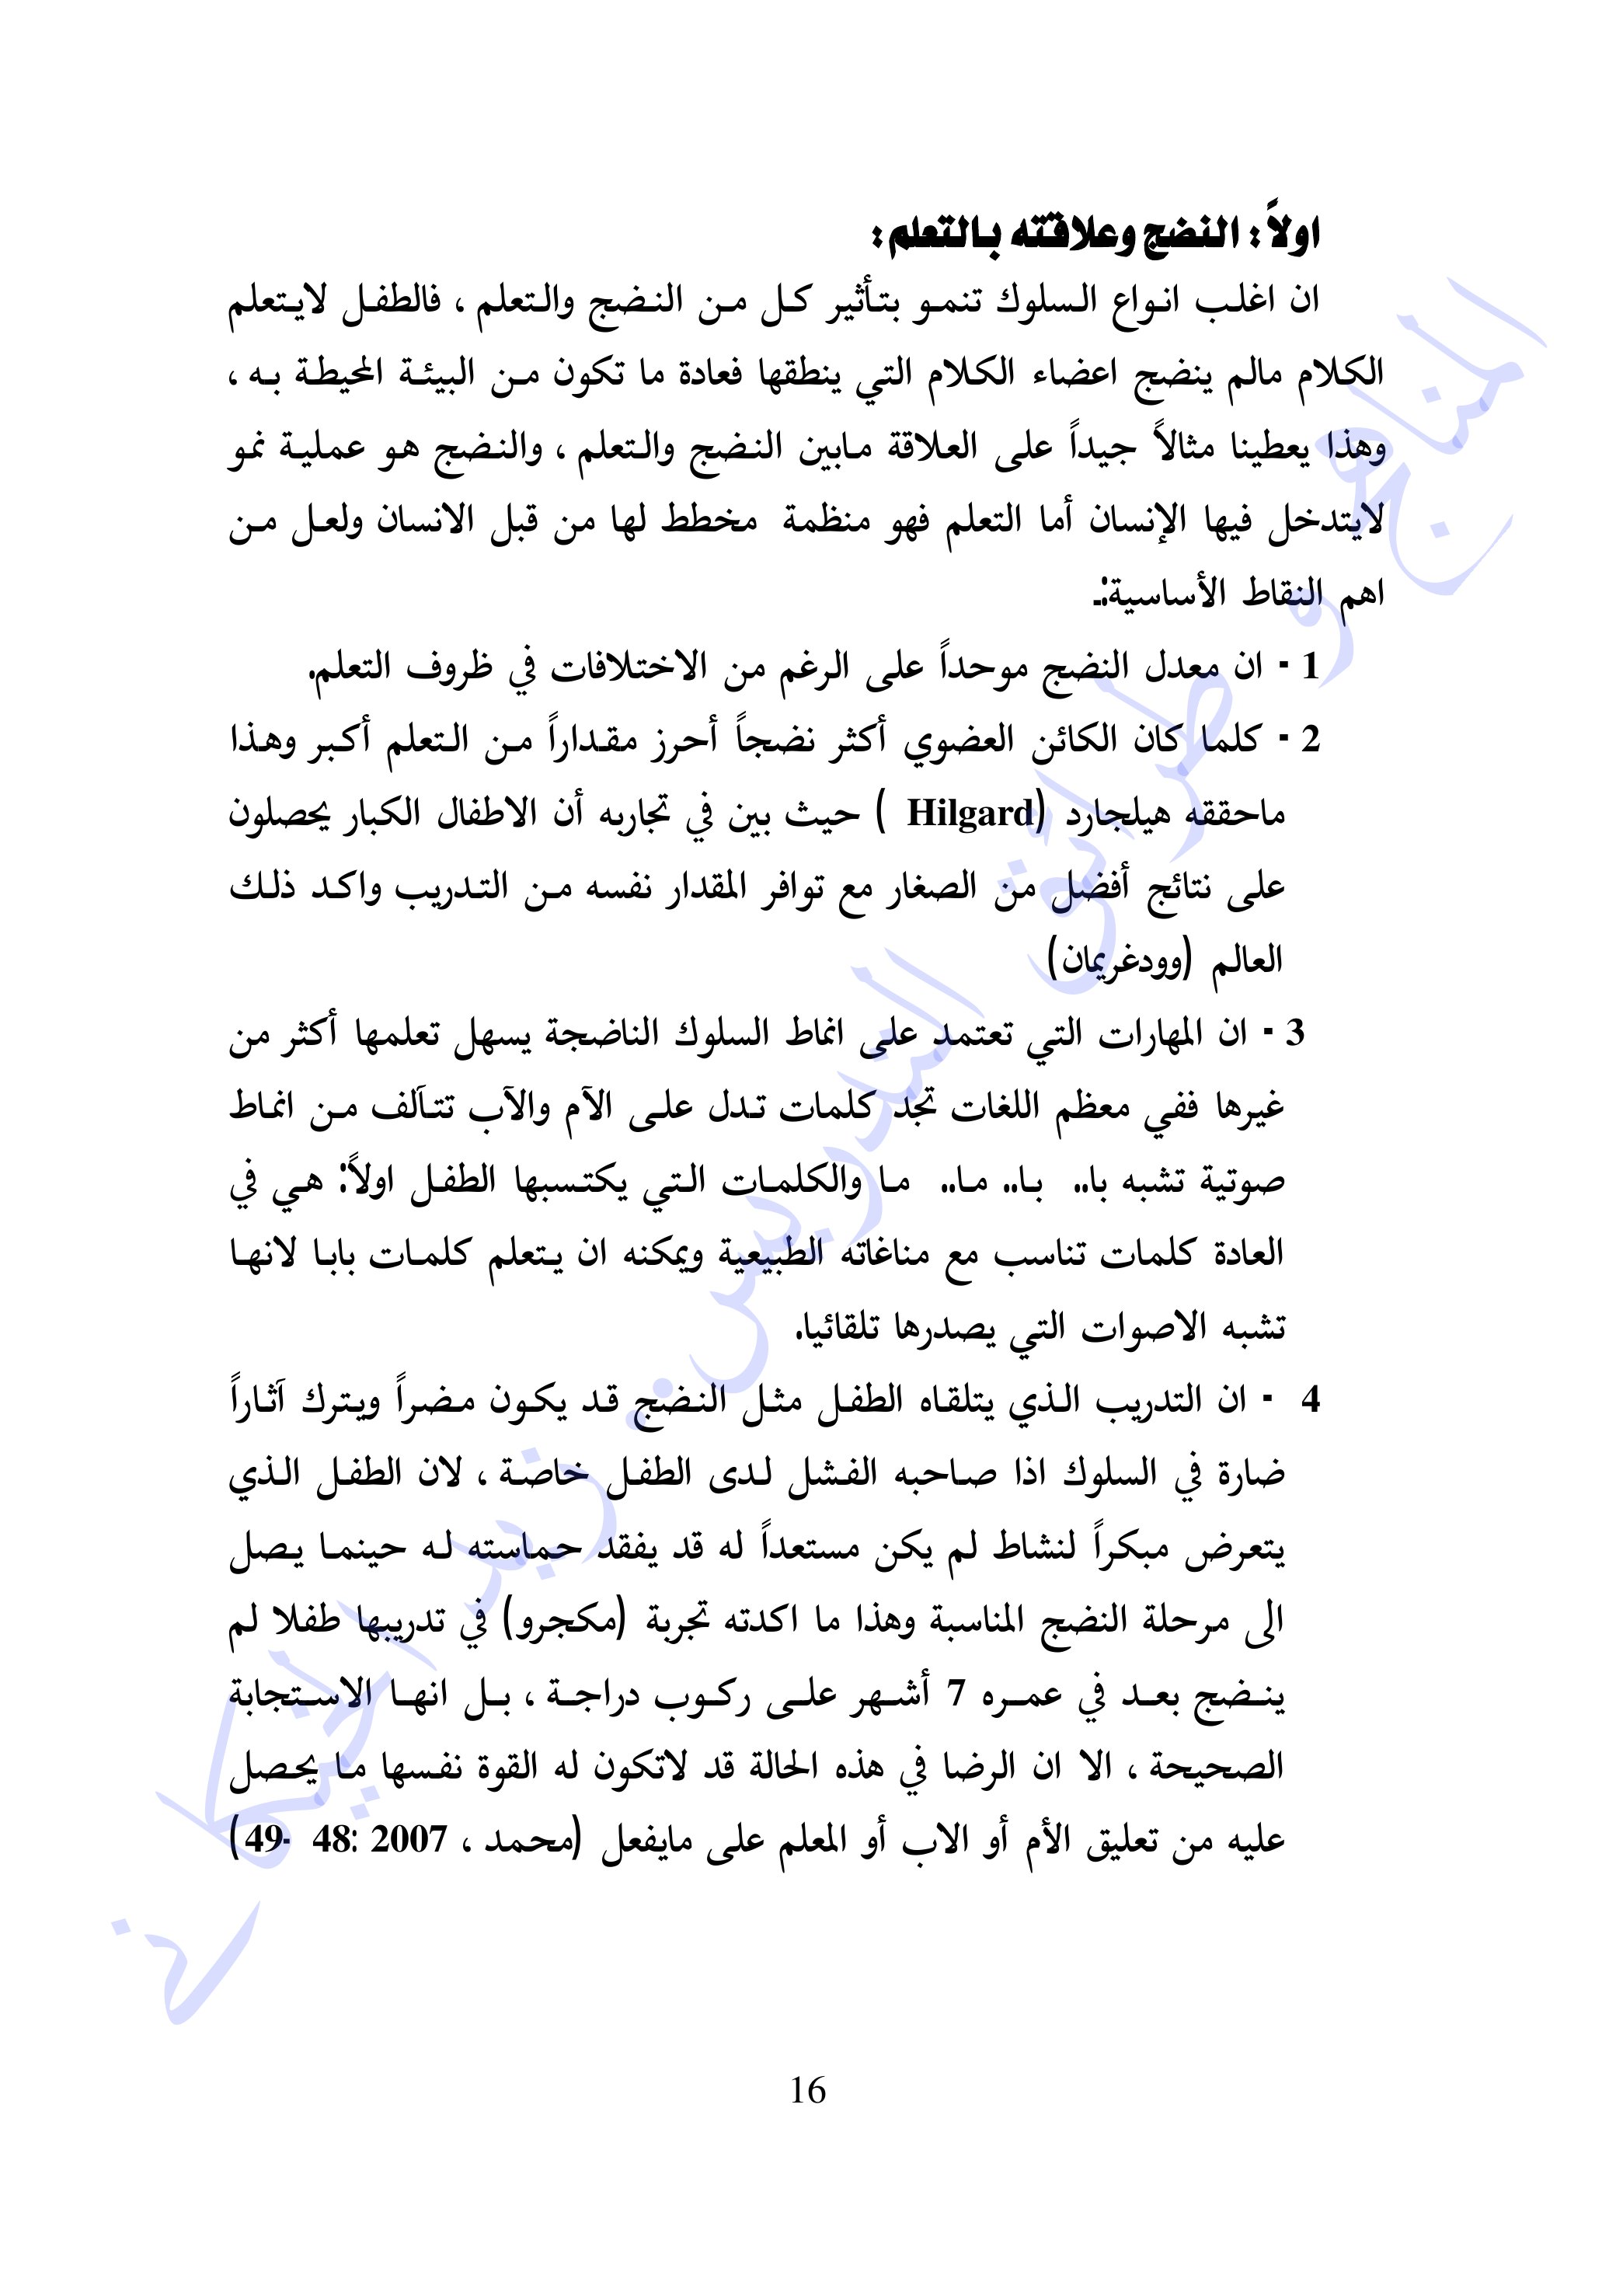 اولاً : النضج وعلاقته بالتعلم :
ان اغلب انواع السلوك تنمو بتأثير كل من النضج والتعلم ، فالطفل لايتعلم
الكلام مالم ينضج اعضاء الكلام التي ينطقها فعادة ما تكون من البيئة المحيطة به ،
وهذا يعطينا مثالاً جيداً على العلاقة مابين النضج والتعلم ، والنضج هو عملية نمو
لايتدخل فيها الإنسان أما التعلم فهو منظمة مخطط لها من قبل الانسان ولعل من
اهم النقاط الأساسية:ـ
1 - ان معدل النضج موحداً على الرغم من الاختلافات في ظروف التعلم.
2 - كلما كان الكائن العضوي أكثر نضجاً أحرز مقداراً من التعلم أكبر وهذا
ماحققه هيلجارد (Hilgard ) حيث بين في تجاربه أن الاطفال الكبار يحصلون
على نتائج أفضل من الصغار مع توافر المقدار نفسه من التدريب واكد ذلك
العالم (وودغريمان)
3 - ان المهارات التي تعتمد على انماط السلوك الناضجة يسهل تعلمها أكثر من
غيرها ففي معظم اللغات تجد كلمات تدل على الآم والآب تتآلف من انماط
صوتية تشبه با.. با.. ما.. ما والكلمات التي يكتسبها الطفل اولاً: هي في
العادة كلمات تناسب مع مناغاته الطبيعية ويمكنه ان يتعلم كلمات بابا لانها
تشبه الاصوات التي يصدرها تلقائيا.
4 - ان التدريب الذي يتلقاه الطفل مثل النضج قد يكون مضراً ويترك آثاراً
ضارة في السلوك اذا صاحبه الفشل لدى الطفل خاصة ، لان الطفل الذي
يتعرض مبكراً لنشاط لم يكن مستعداً له قد يفقد حماسته له حينما يصل
الى مرحلة النضج المناسبة وهذا ما اكدته تجربة (مكجرو) في تدريبها طفلا لم
ينضج بعد في عمره 7 أشهر على ركوب دراجة ، بل انها الاستجابة
الصحيحة ، الا ان الرضا في هذه الحالة قد لاتكون له القوة نفسها ما يحصل
عليه من تعليق الأم أو الاب أو المعلم على مايفعل (محمد ، 2007 :48 -49)
16
المناهج وطرائق التدريس. زيد الخيكاني